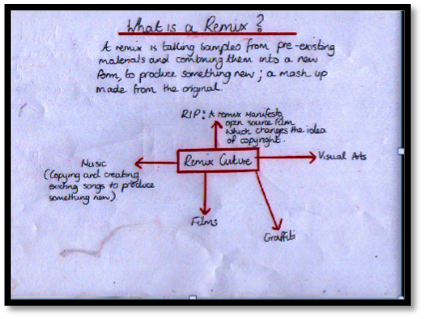 What is a Remix?
A remix is talking samples from pre-existing
materials and combining them into a new
form, to produce something new; a mash up
made from the original.
RIP: A remix Manifesto
open source film
which changes the idea
of copyright.
Music
(Copying and creating
existing songs to produce
something new)
Remix Culture
Visual Arts
Films
Graffiti